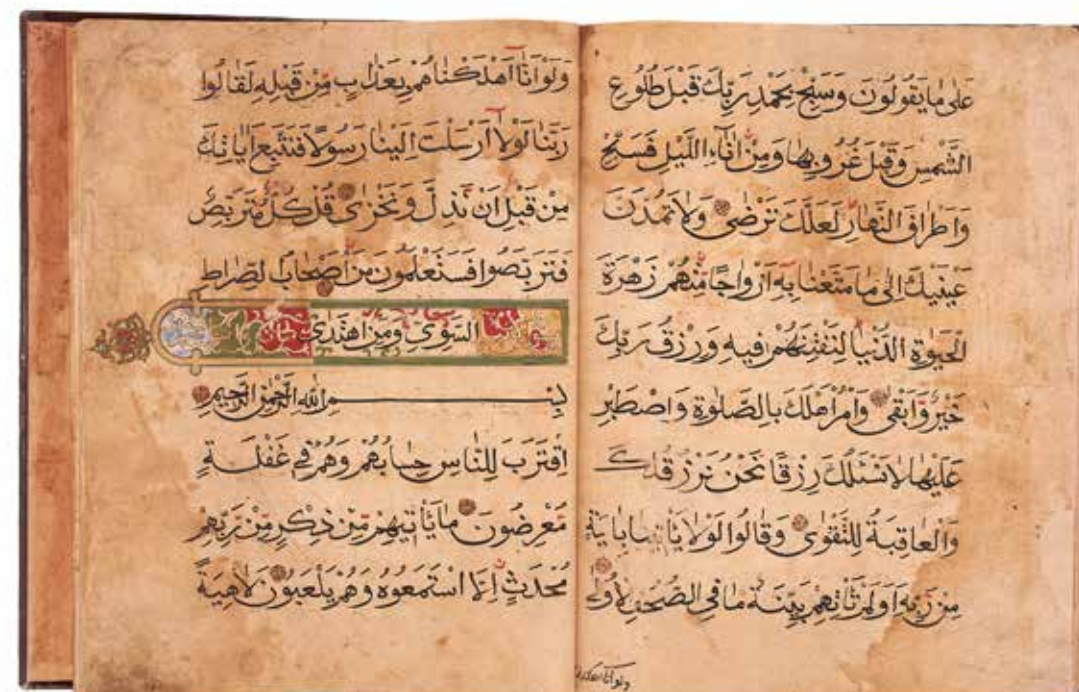 عَلٰى مَا يَقُولُونَ وَسَبِّحْ بِحَمْدِ رَبِّكَ قَبْلَ طُلُوعِ
الشَّمْسِ وَقَبْلَ غُرُوبِهَا وَمِنْ اٰنَآءِ اللَّيْلِ فَسَبِّحْ
وَاَطْرَافَ النَّهَارِ لَعَلَّكَ تَرْضٰى وَلَا تَمُدَّنَّ
عَيْنَيْكَ اِلٰى مَا مَتَّعْنَا بِهٖ اَزْوَاجًا مِنْهُمْ زَهْرَةَ
الْحَيٰوةِ الدُّنْيَا لِنَفْتِنَهُمْ فِيهِ وَرِزْقُ رَبِّكَ
خَيْرٌ وَاَبْقٰى وَأْمُرْ اَهْلَكَ بِالصَّلٰوةِ وَاصْطَبِرْ
عَلَيْهَا لَا نَسْئَلُكَ رِزْقًا نَحْنُ نَرْزُقُكَ
وَالْعَاقِبَةُ لِلتَّقْوٰى وَقَالُوا لَوْلَا يَأْتِينَا بِاٰيَةٍ
مِنْ رَبِّهٖ اَوَلَمْ تَأْتِهِمْ بَيِّنَةُ مَا فِي الصُّحُفِ الْاُولٰى
وَلَوْ اَنَّا اَهْلَكْنَاهُمْ بِعَذَابٍ مِنْ قَبْلِهٖ لَقَالُوا
رَبَّنَا لَوْلَا اَرْسَلْتَ اِلَيْنَا رَسُولًا فَنَتَّبِعَ اٰيَاتِكَ
مِنْ قَبْلِ اَنْ نَذِلَّ وَنَخْزٰى قُلْ كُلٌّ مُتَرَبِّصٌ
فَتَرَبَّصُوا فَسَتَعْلَمُونَ مَنْ اَصْحَابُ الصِّرَاطِ
السَّوِيِّ وَمَنِ اهْتَدٰى
بِسْمِ اللّٰهِ الرَّحْمٰنِ الرَّحِيمِ
اِقْتَرَبَ لِلنَّاسِ حِسَابُهُمْ وَهُمْ فِي غَفْلَةٍ
مُعْرِضُونَ مَا يَأْتِيهِمْ مِنْ ذِكْرٍ مِنْ رَبِّهِمْ
مُحْدَثٍ اِلَّا اسْتَمَعُوهُ وَهُمْ يَلْعَبُونَ لَاهِيَةً